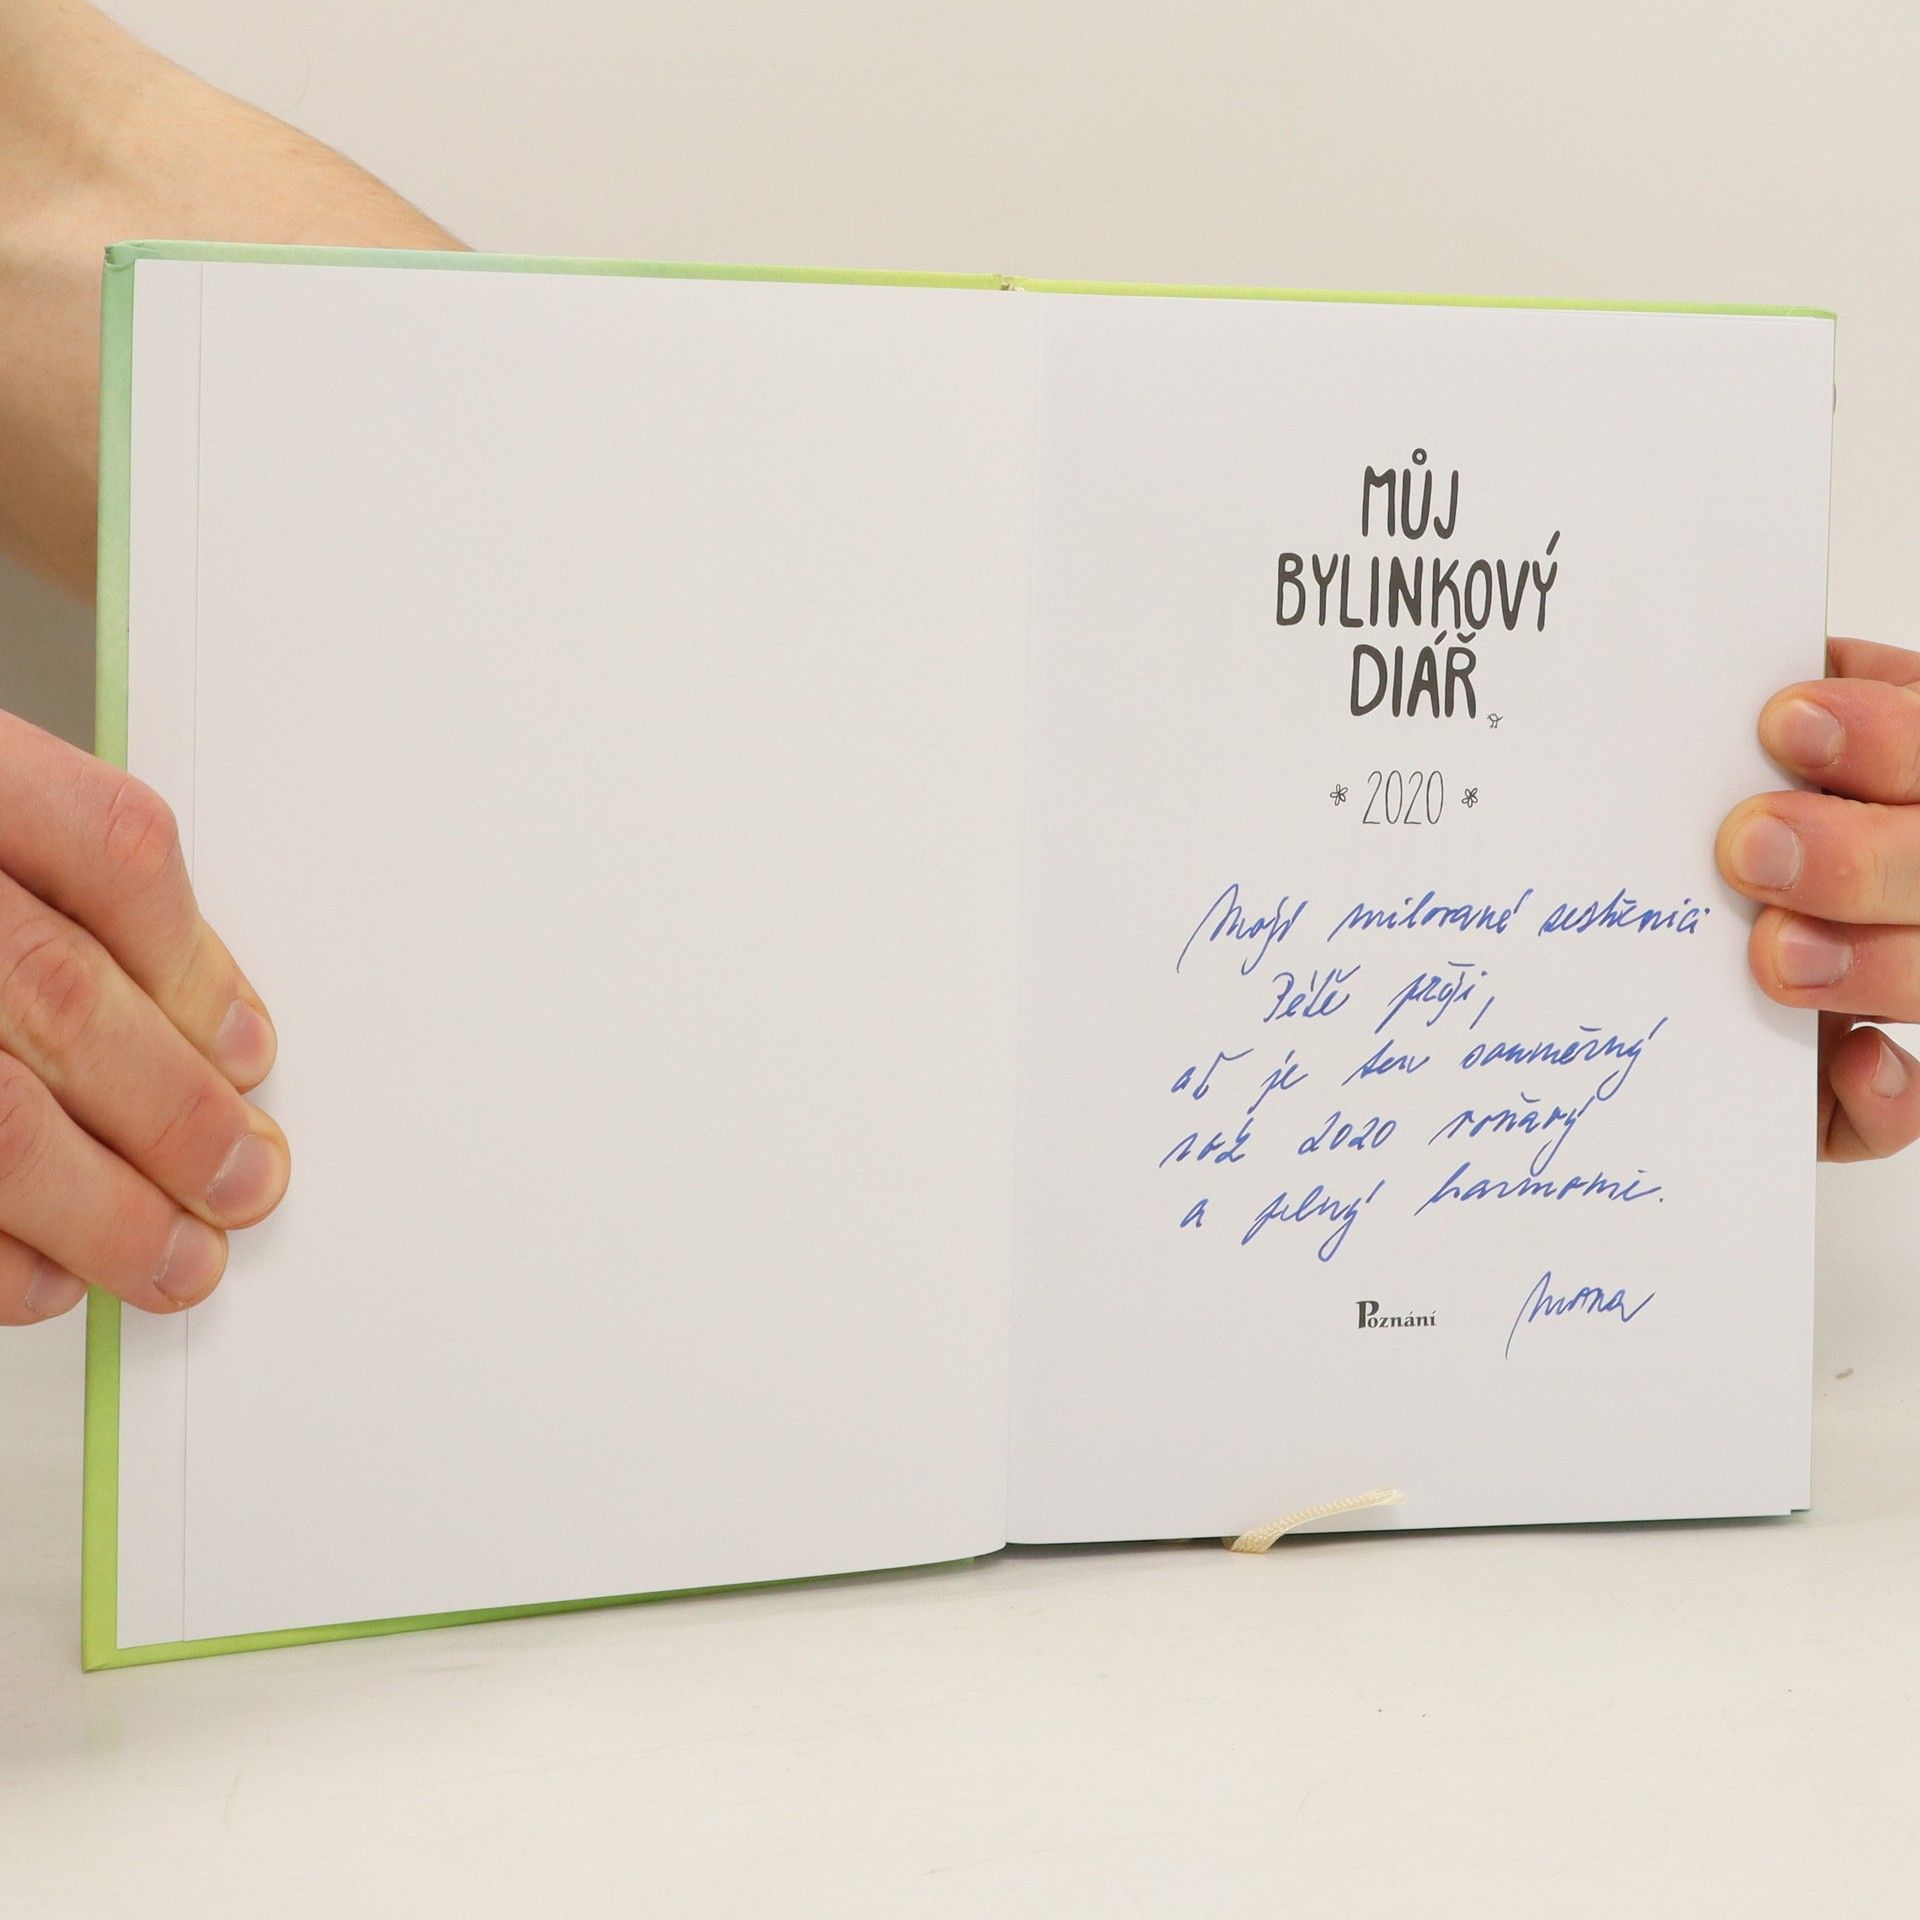 MŮJ
BYLINKOVÝ
DIÁŘ
2020
Mojí milované sestřenici
Péťě přeji,
ať je ten souměrný
rok 2020 voňavý
a plný harmonie.
Poznání